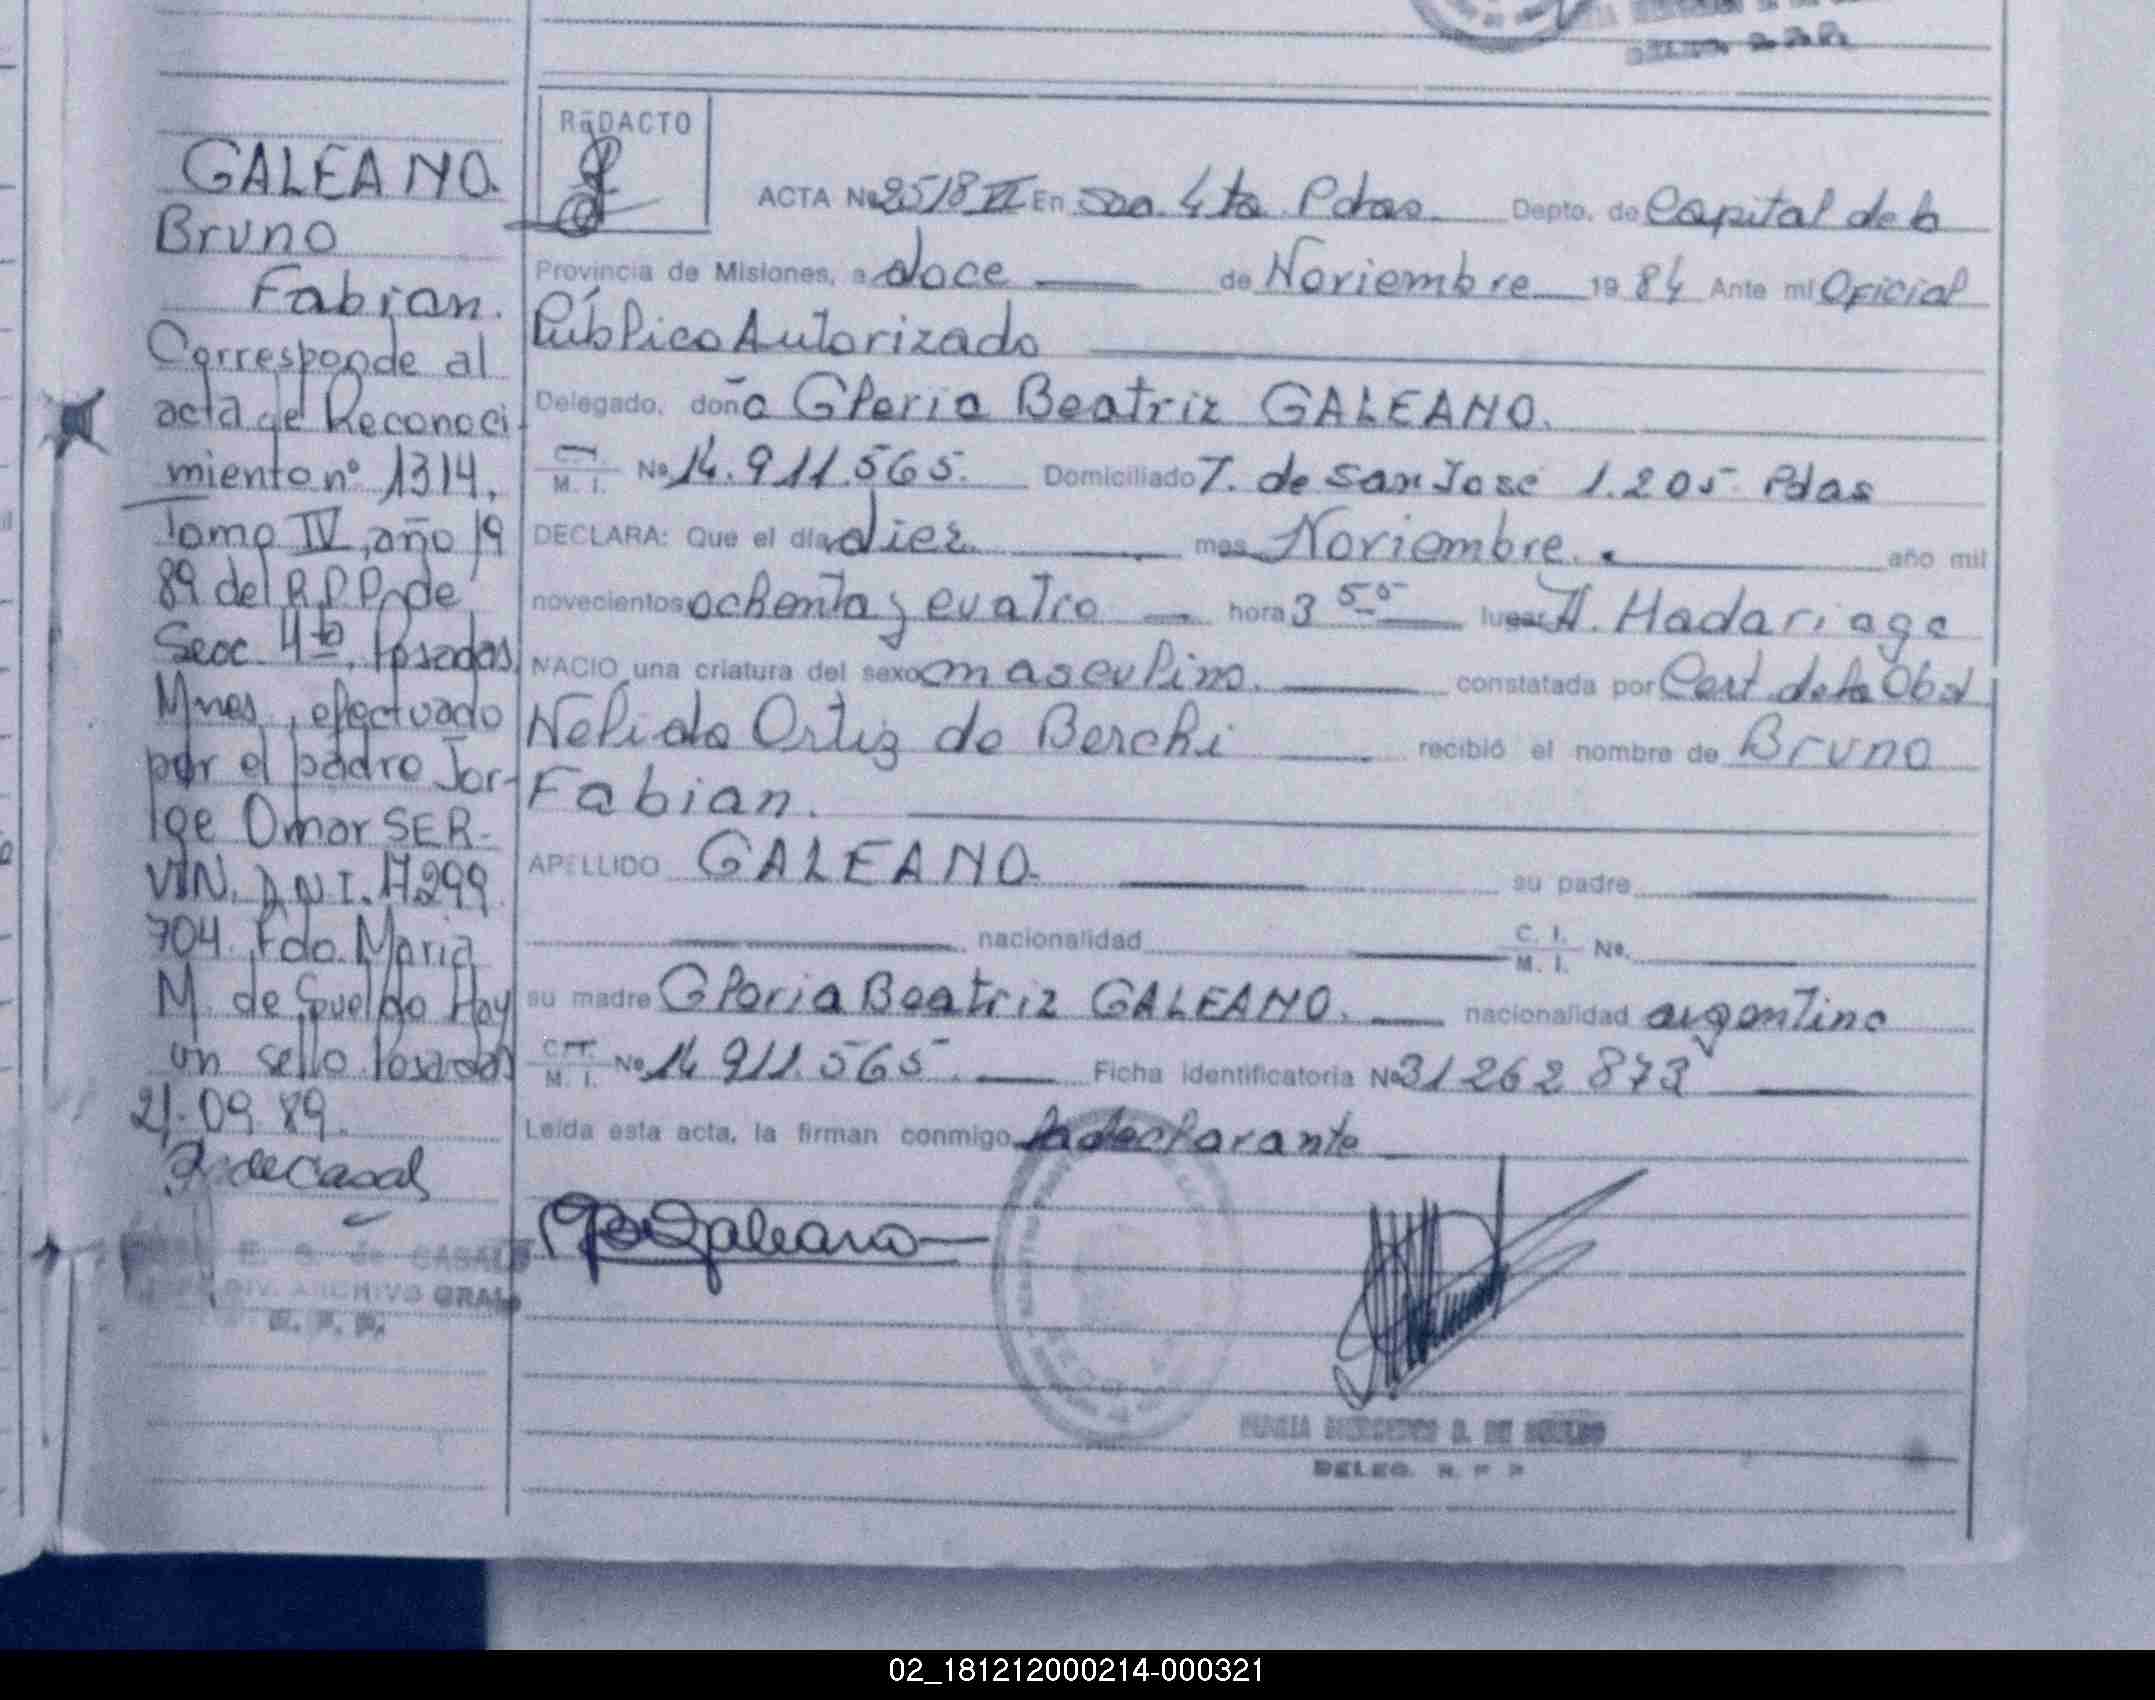 GALEANO.
Bruno
Fabian.
Corresponde al
acta de Reconoci
miento nº 1314,
Tomo IV, año 19
89 del R.P.P. de
Secc. 4ta. Posadas
Mnes, efectuado
por el padre Jor-
ge Omar SER-
VIN. D.N.I. 17299
704. Fdo. Maria
M. de Sueldo Hay
un sello. Posadas
21-09.89.
E. G. de CASALS
DIV. ARCHIVO GRAL.
R. P. P.
REDACTO
ACTA No 2518 VI En Secc. 4ta Pdas. Depto. de Capital de la
Provincia de Misiones, a doce de Noviembre 1984 Ante mi Oficial
Público Autorizado
Delegado, doña Gloria Beatriz GALEANO.
M. I. No 14.911.565. Domiciliado T. de San José 1.205 Pdas
DECLARA: Que el día diez mes Noviembre. año mil
novecientos ochenta y cuatro hora 3 55 lugar H. Madariaga
NACIO una criatura del sexo masculino. constatada por Cert. de la Obst
Nelida Ortiz de Berchi recibió el nombre de Bruno
Fabian.
APELLIDO GALEANO. su padre
nacionalidad C. I. M. I. No.
su madre Gloria Beatriz GALEANO. nacionalidad argentina
M. I. No 14 911.565. Ficha identificatoria No 31262873
Leída esta acta, la firman conmigo la declarante
Galeano
MARIA MERCEDES D. DE SUELDO
DELEG. R. P. P.
02_181212000214-000321